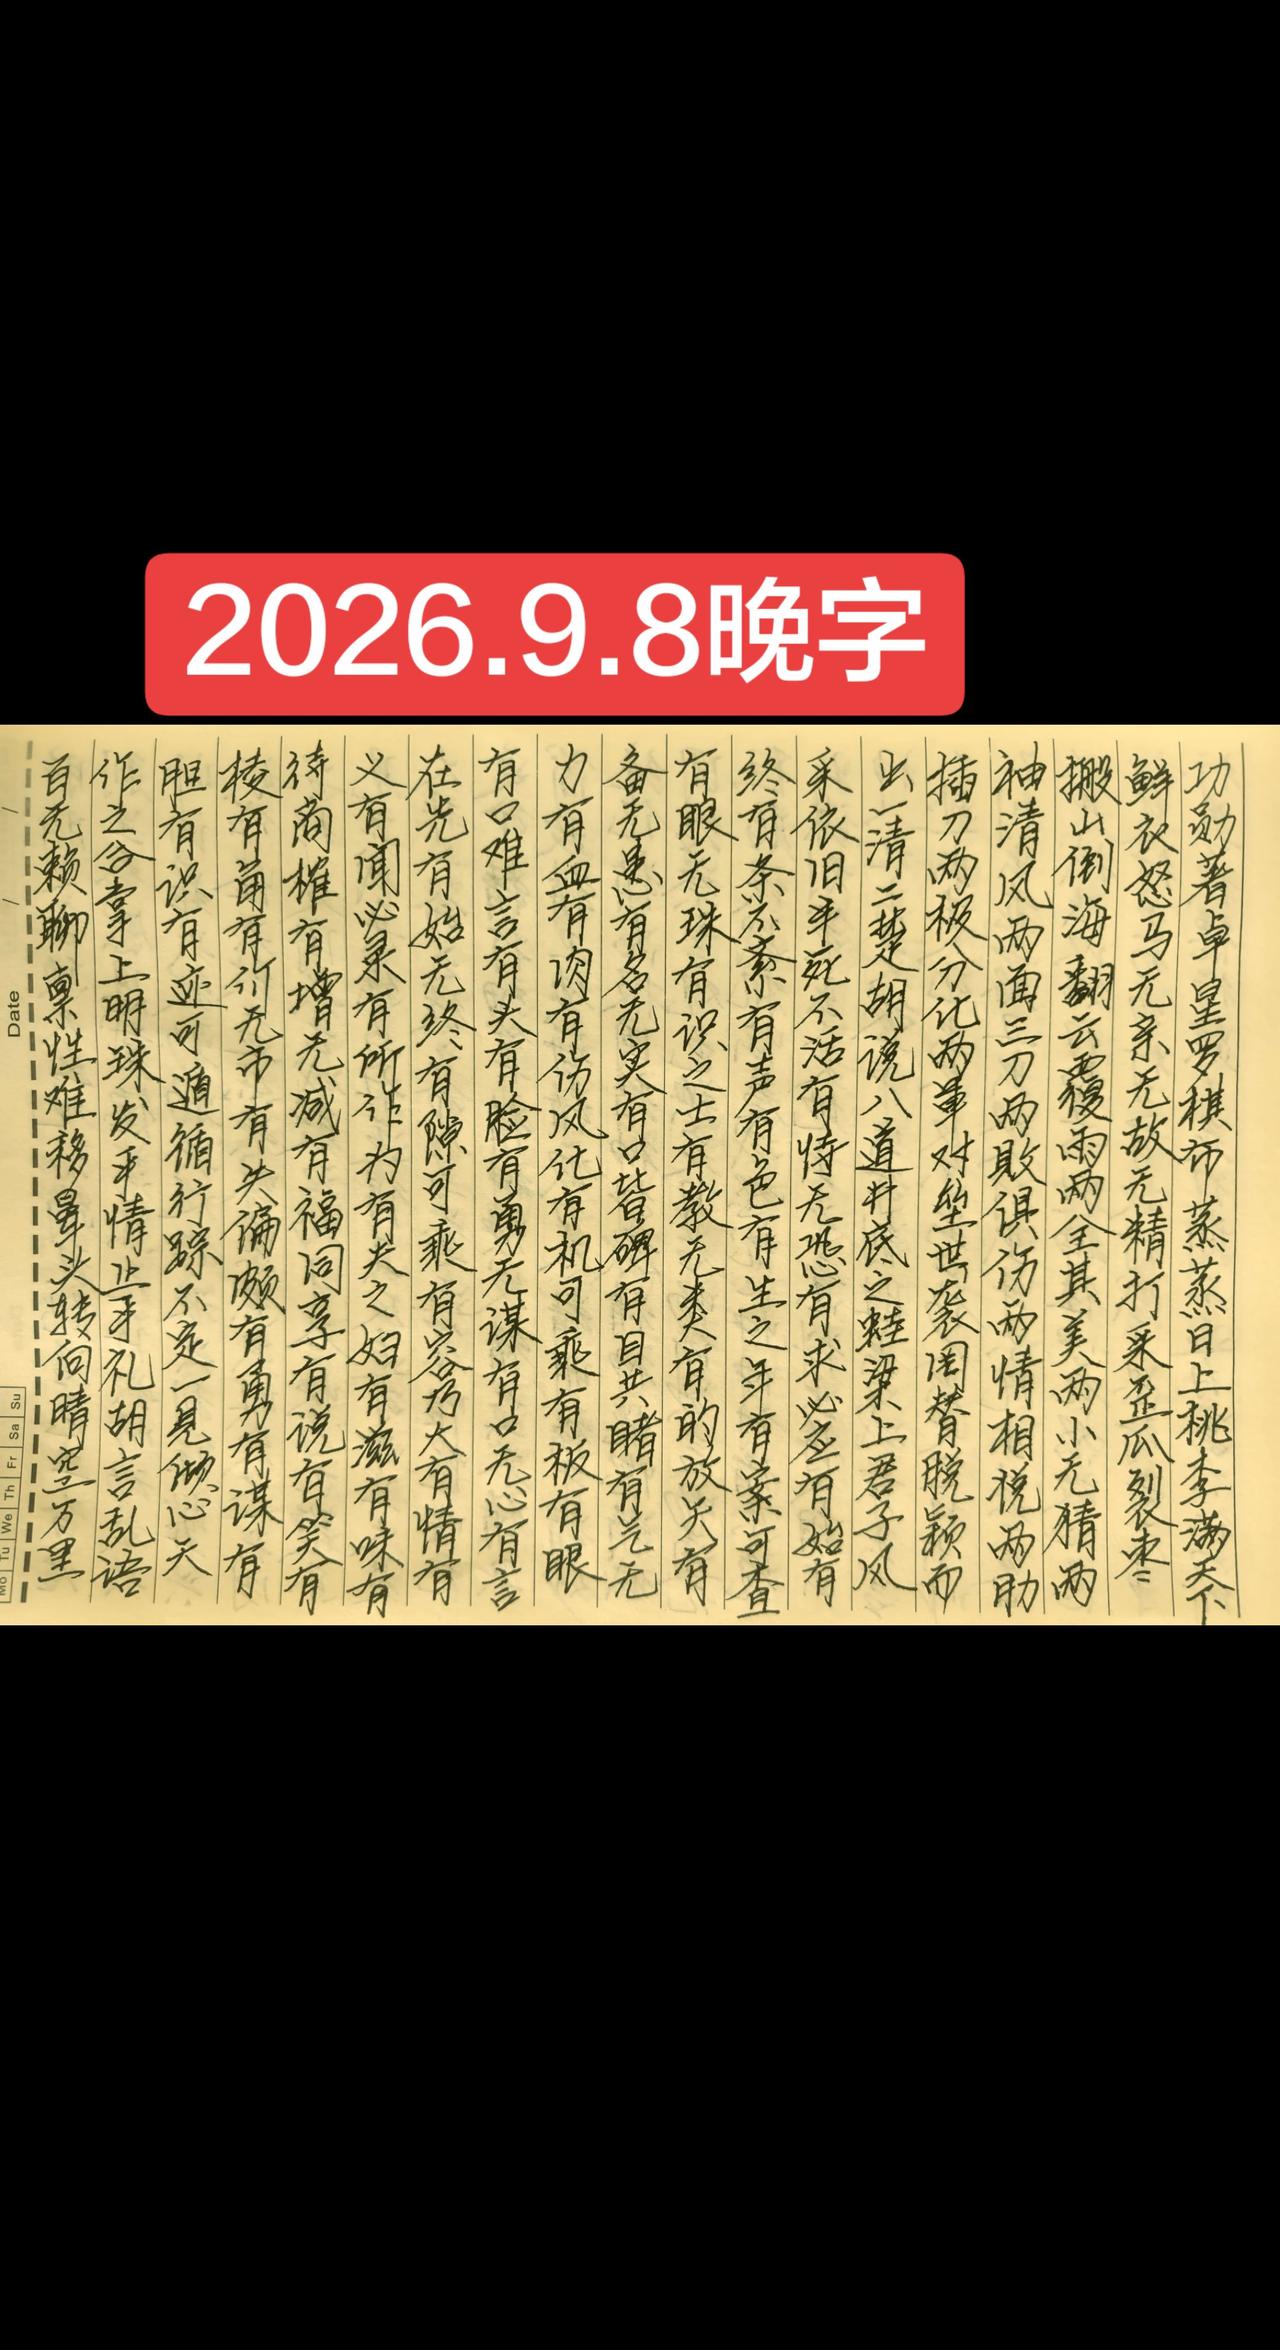 2026.9.8晚字
功勋著卓星罗棋布蒸蒸日上桃李满天下
鲜衣怒马无亲无故无精打采歪瓜裂枣
搬山倒海翻云覆雨两全其美两小无猜两
袖清风两面三刀两败俱伤两情相悦两肋
插刀两极分化两军对垒世袭罔替脱颖而
出一清二楚胡说八道井底之蛙梁上君子风
采依旧半死不活有恃无恐有求必应有始有
终有条不紊有声有色有生之年有案可查
有眼无珠有识之士有教无类有的放矢有
备无患有名无实有口皆碑有目共睹有气无
力有血有肉有伤风化有机可乘有板有眼
有口难言有头有脸有勇无谋有口无心有言
在先有始无终有隙可乘有容乃大有情有
义有闻必录有所作为有夫之妇有滋有味有
待商榷有增无减有福同享有说有笑有
棱有角有价无市有失偏颇有勇有谋有
胆有识有迹可遁循行踪不定一见倾心天
作之合掌上明珠发乎情止乎礼胡言乱语
百无赖聊禀性难移晕头转向晴空万里
Date / /
Mo Tu We Th Fr Sa Su